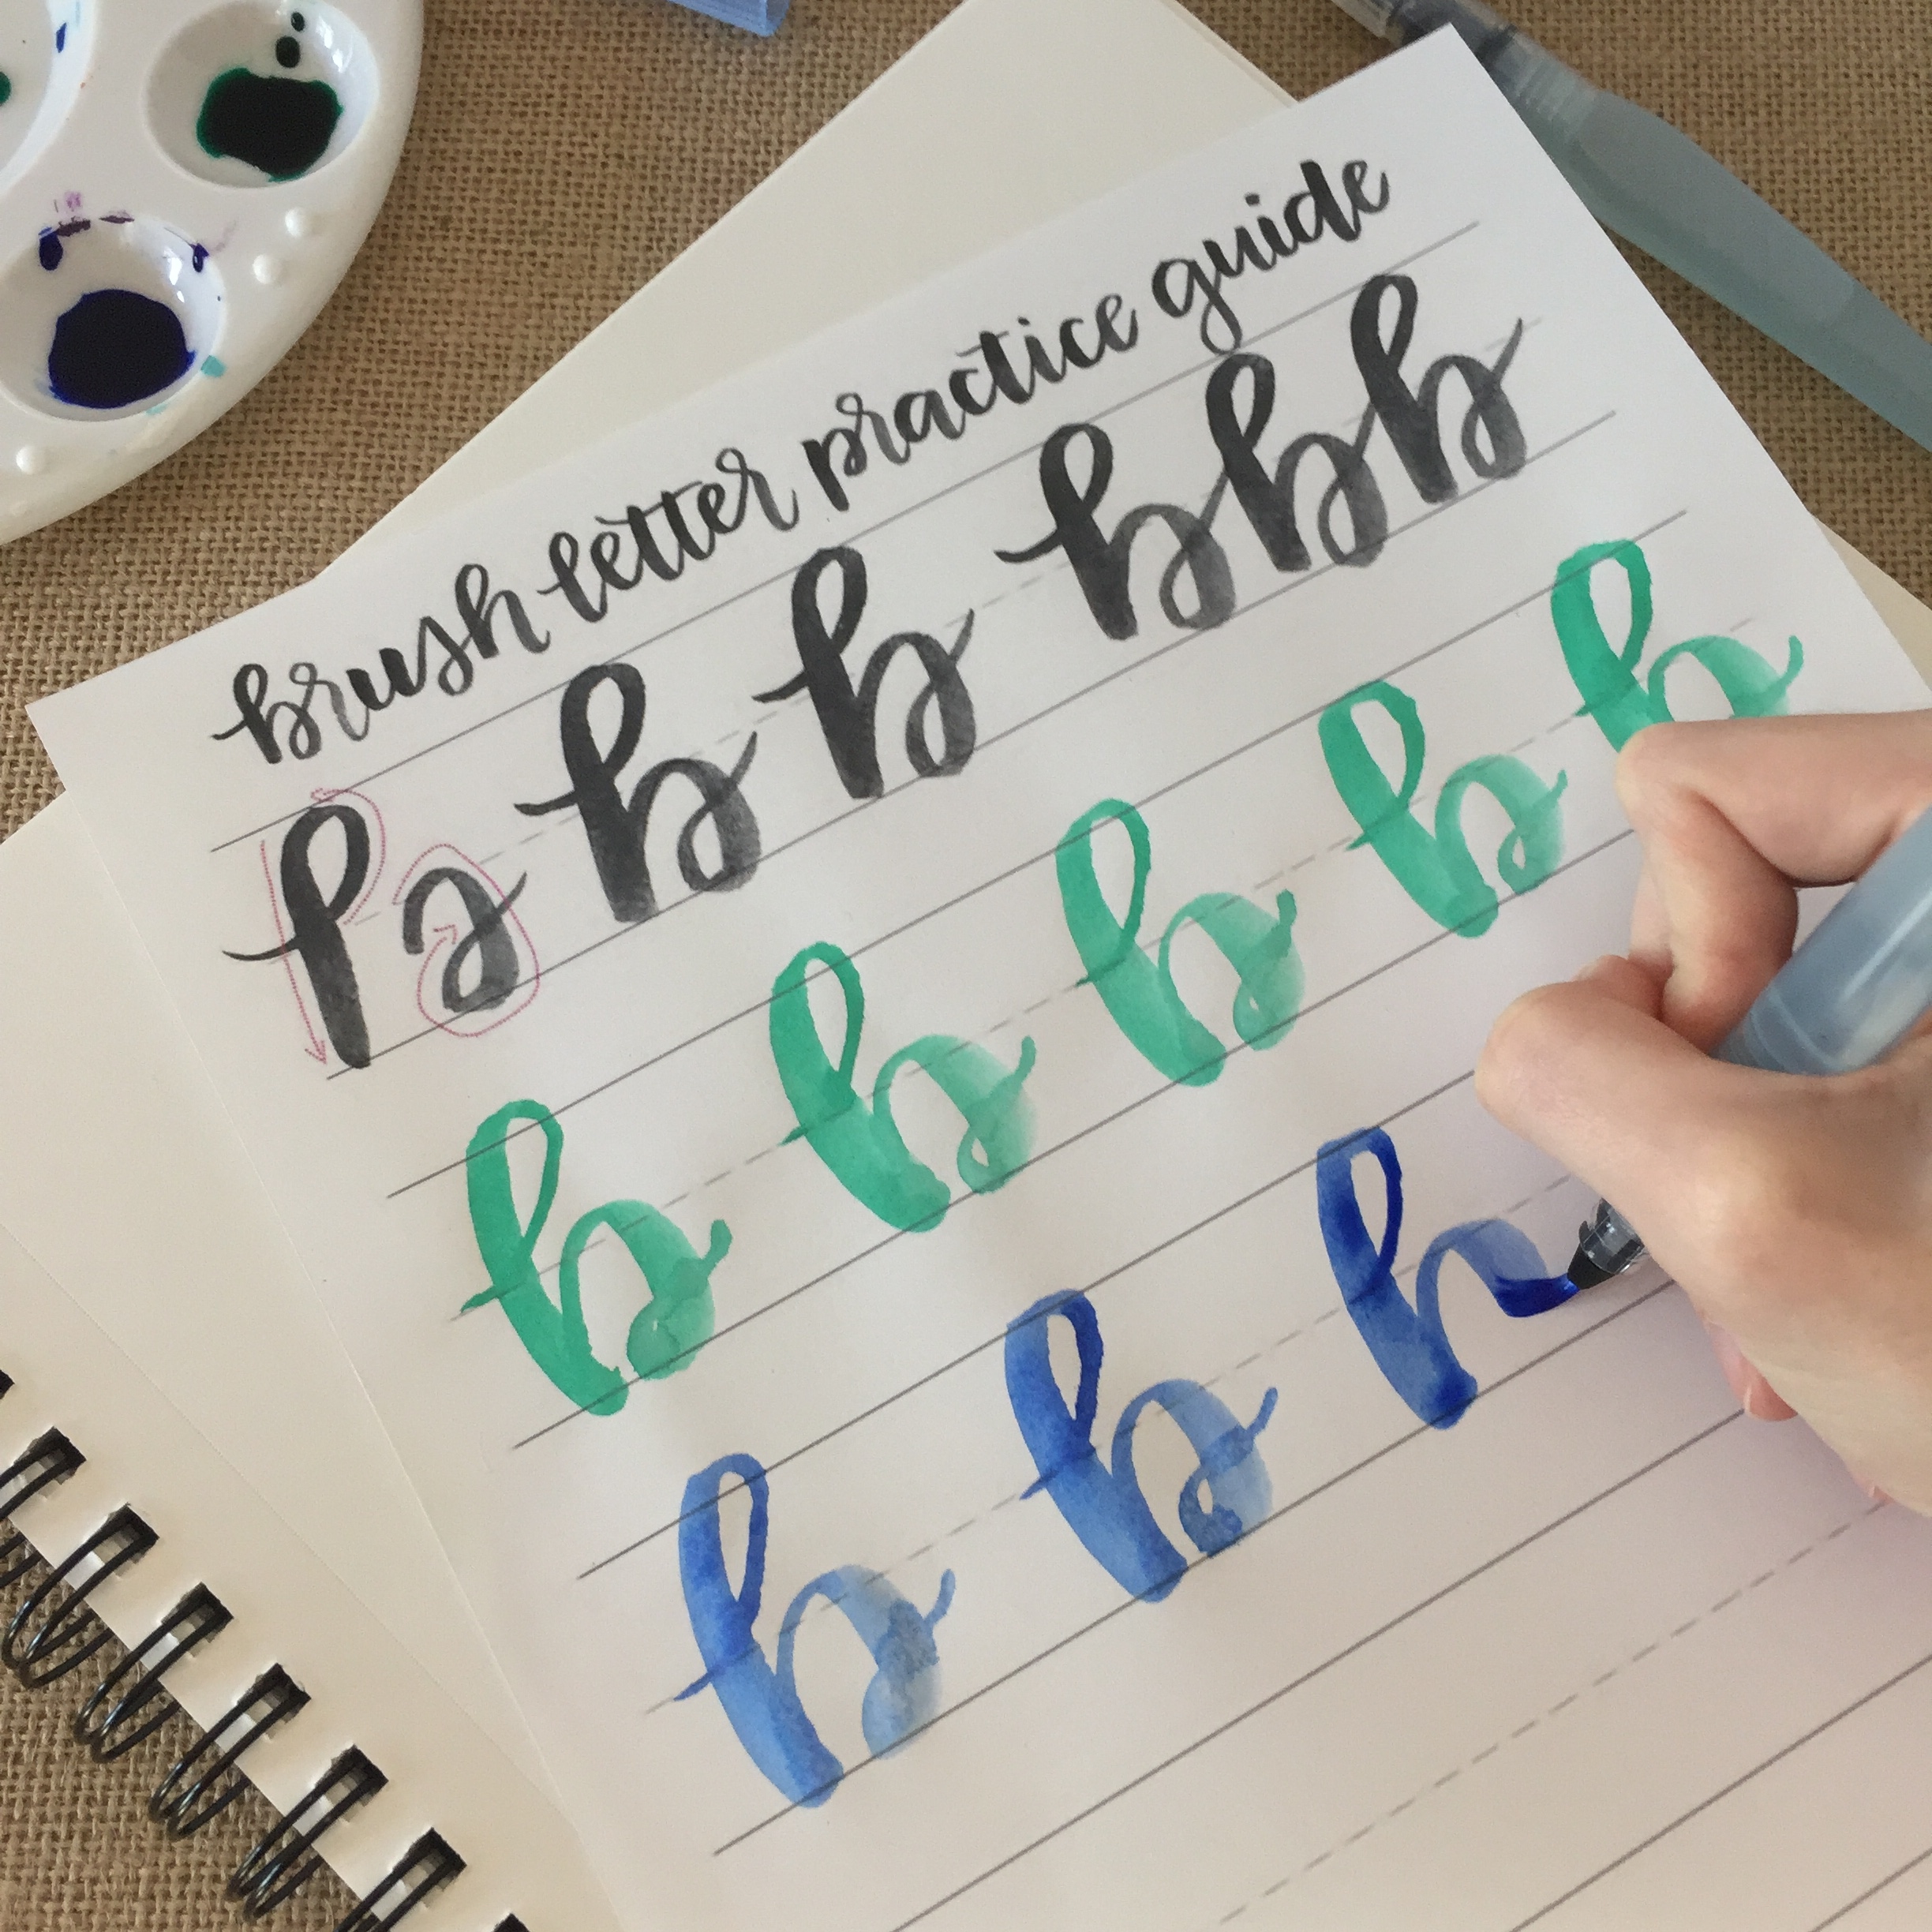 brush letter practice guide
b b b bbb
b b b b b
b b b